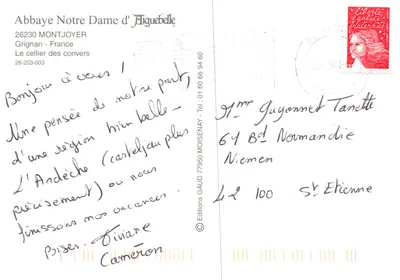 Abbaye Notre Dame d'Aiguebelle
26230 MONTJOYER
Grignan - France
Le cellier des convers
26-203-003
Bonjour à vous !
Une pensée de notre part,
d'une région bien belle -
L'Ardèche (casteljau plus
précisement) où nous
finissons nos vacances.
Bises. Viviane
Cameron
© Editions GAUD 77950 MOISENAY - Tél : 01 60 66 94 60
Mme Guyonnet Tanette
61 Bd Normandie
Niemen
42 100 St Etienne